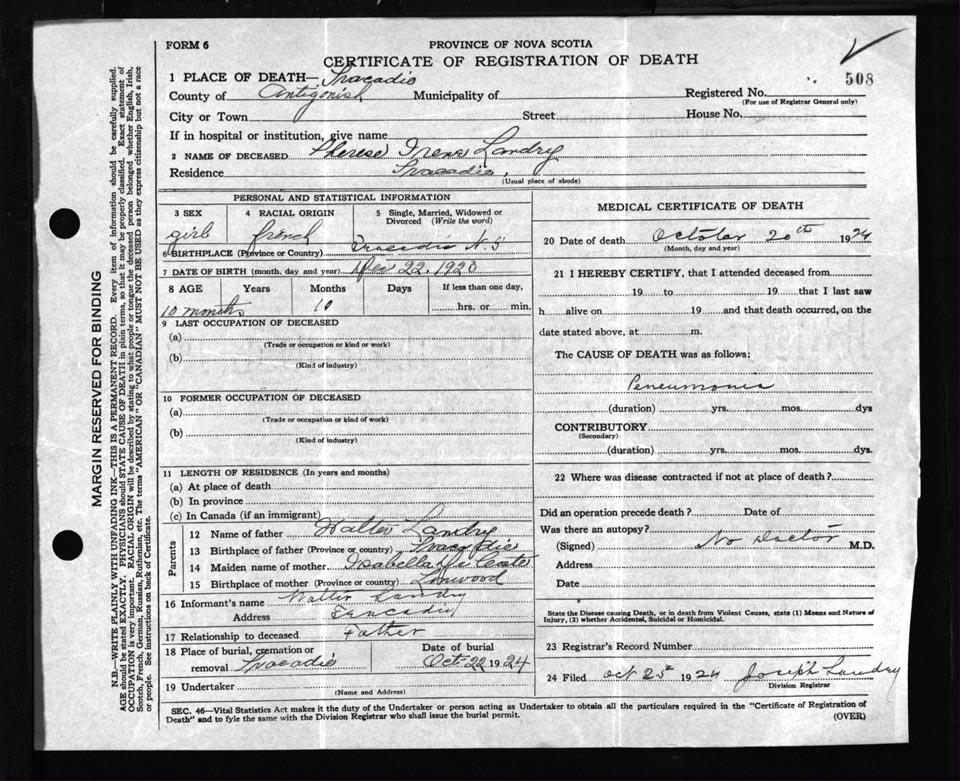 FORM 6
PROVINCE OF NOVA SCOTIA
CERTIFICATE OF REGISTRATION OF DEATH
508
1 PLACE OF DEATH— Tracadie
County of Antigonish Municipality of Registered No.
(For use of Registrar General only)
City or Town Street House No.
If in hospital or institution, give name
2 NAME OF DECEASED Therese Irene Landry
Residence Tracadie,
(Usual place of abode)
PERSONAL AND STATISTICAL INFORMATION
3 SEX 4 RACIAL ORIGIN 5 Single, Married, Widowed or
Divorced (Write the word)
girl french
6 BIRTHPLACE (Province or Country) Tracadie N.S
7 DATE OF BIRTH (month, day and year) Dec 22, 1923
8 AGE Years Months Days If less than one day,
10 months 10 hrs. or min.
9 LAST OCCUPATION OF DECEASED
(a)
(Trade or occupation or kind or work)
(b)
(Kind of industry)
10 FORMER OCCUPATION OF DECEASED
(a)
(Trade or occupation or kind of work)
(b)
(Kind of industry)
11 LENGTH OF RESIDENCE (In years and months)
(a) At place of death
(b) In province
(c) In Canada (if an immigrant)
Parents
12 Name of father Walter Landry
13 Birthplace of father (Province or country) Tracadie
14 Maiden name of mother Isabella
15 Birthplace of mother (Province or country) Linwood
16 Informant's name Walter Landry
Address Tracadie
17 Relationship to deceased Father
18 Place of burial, cremation or Date of burial
removal Tracadie Oct-22 1924
19 Undertaker
(Name and Address)
MEDICAL CERTIFICATE OF DEATH
20 Date of death October 20th 1924
(Month, day and year)
21 I HEREBY CERTIFY, that I attended deceased from
19 to 19 that I last saw
h alive on 19 and that death occurred, on the
date stated above, at m.
The CAUSE OF DEATH was as follows:
Peneumonia
(duration) yrs. mos. dys
CONTRIBUTORY
(Secondary)
(duration) yrs. mos. dys.
22 Where was disease contracted if not at place of death?
Did an operation precede death? Date of
Was there an autopsy?
(Signed) No Doctor M.D.
Address
Date
State the Disease causing Death, or in death from Violent Causes, state (1) Means and Nature of
Injury, (2) whether Accidental, Suicidal or Homicidal.
23 Registrar's Record Number
24 Filed oct 25th 1924 Joseph Landry
Division Registrar
SEC. 46—Vital Statistics Act makes it the duty of the Undertaker or person acting as Undertaker to obtain all the particulars required in the "Certificate of Registration of
Death" and to fyle the same with the Division Registrar who shall issue the burial permit. (OVER)
MARGIN RESERVED FOR BINDING
N.B.—WRITE PLAINLY WITH UNFADING INK—THIS IS A PERMANENT RECORD. Every item of information should be carefully supplied.
AGE should be stated EXACTLY. PHYSICIANS should STATE CAUSE OF DEATH in plain terms, so that it may be properly classified. Exact statement of
OCCUPATION is very important. RACIAL ORIGIN will be described by stating to what people or tongue the deceased person belonged whether English, Irish,
Scotch, French, German, Russian, Ruthenian, etc. The terms "AMERICAN" OR "CANADIAN" MUST NOT BE USED as they express citizenship but not a race
or people. See instructions on back of Certificate.